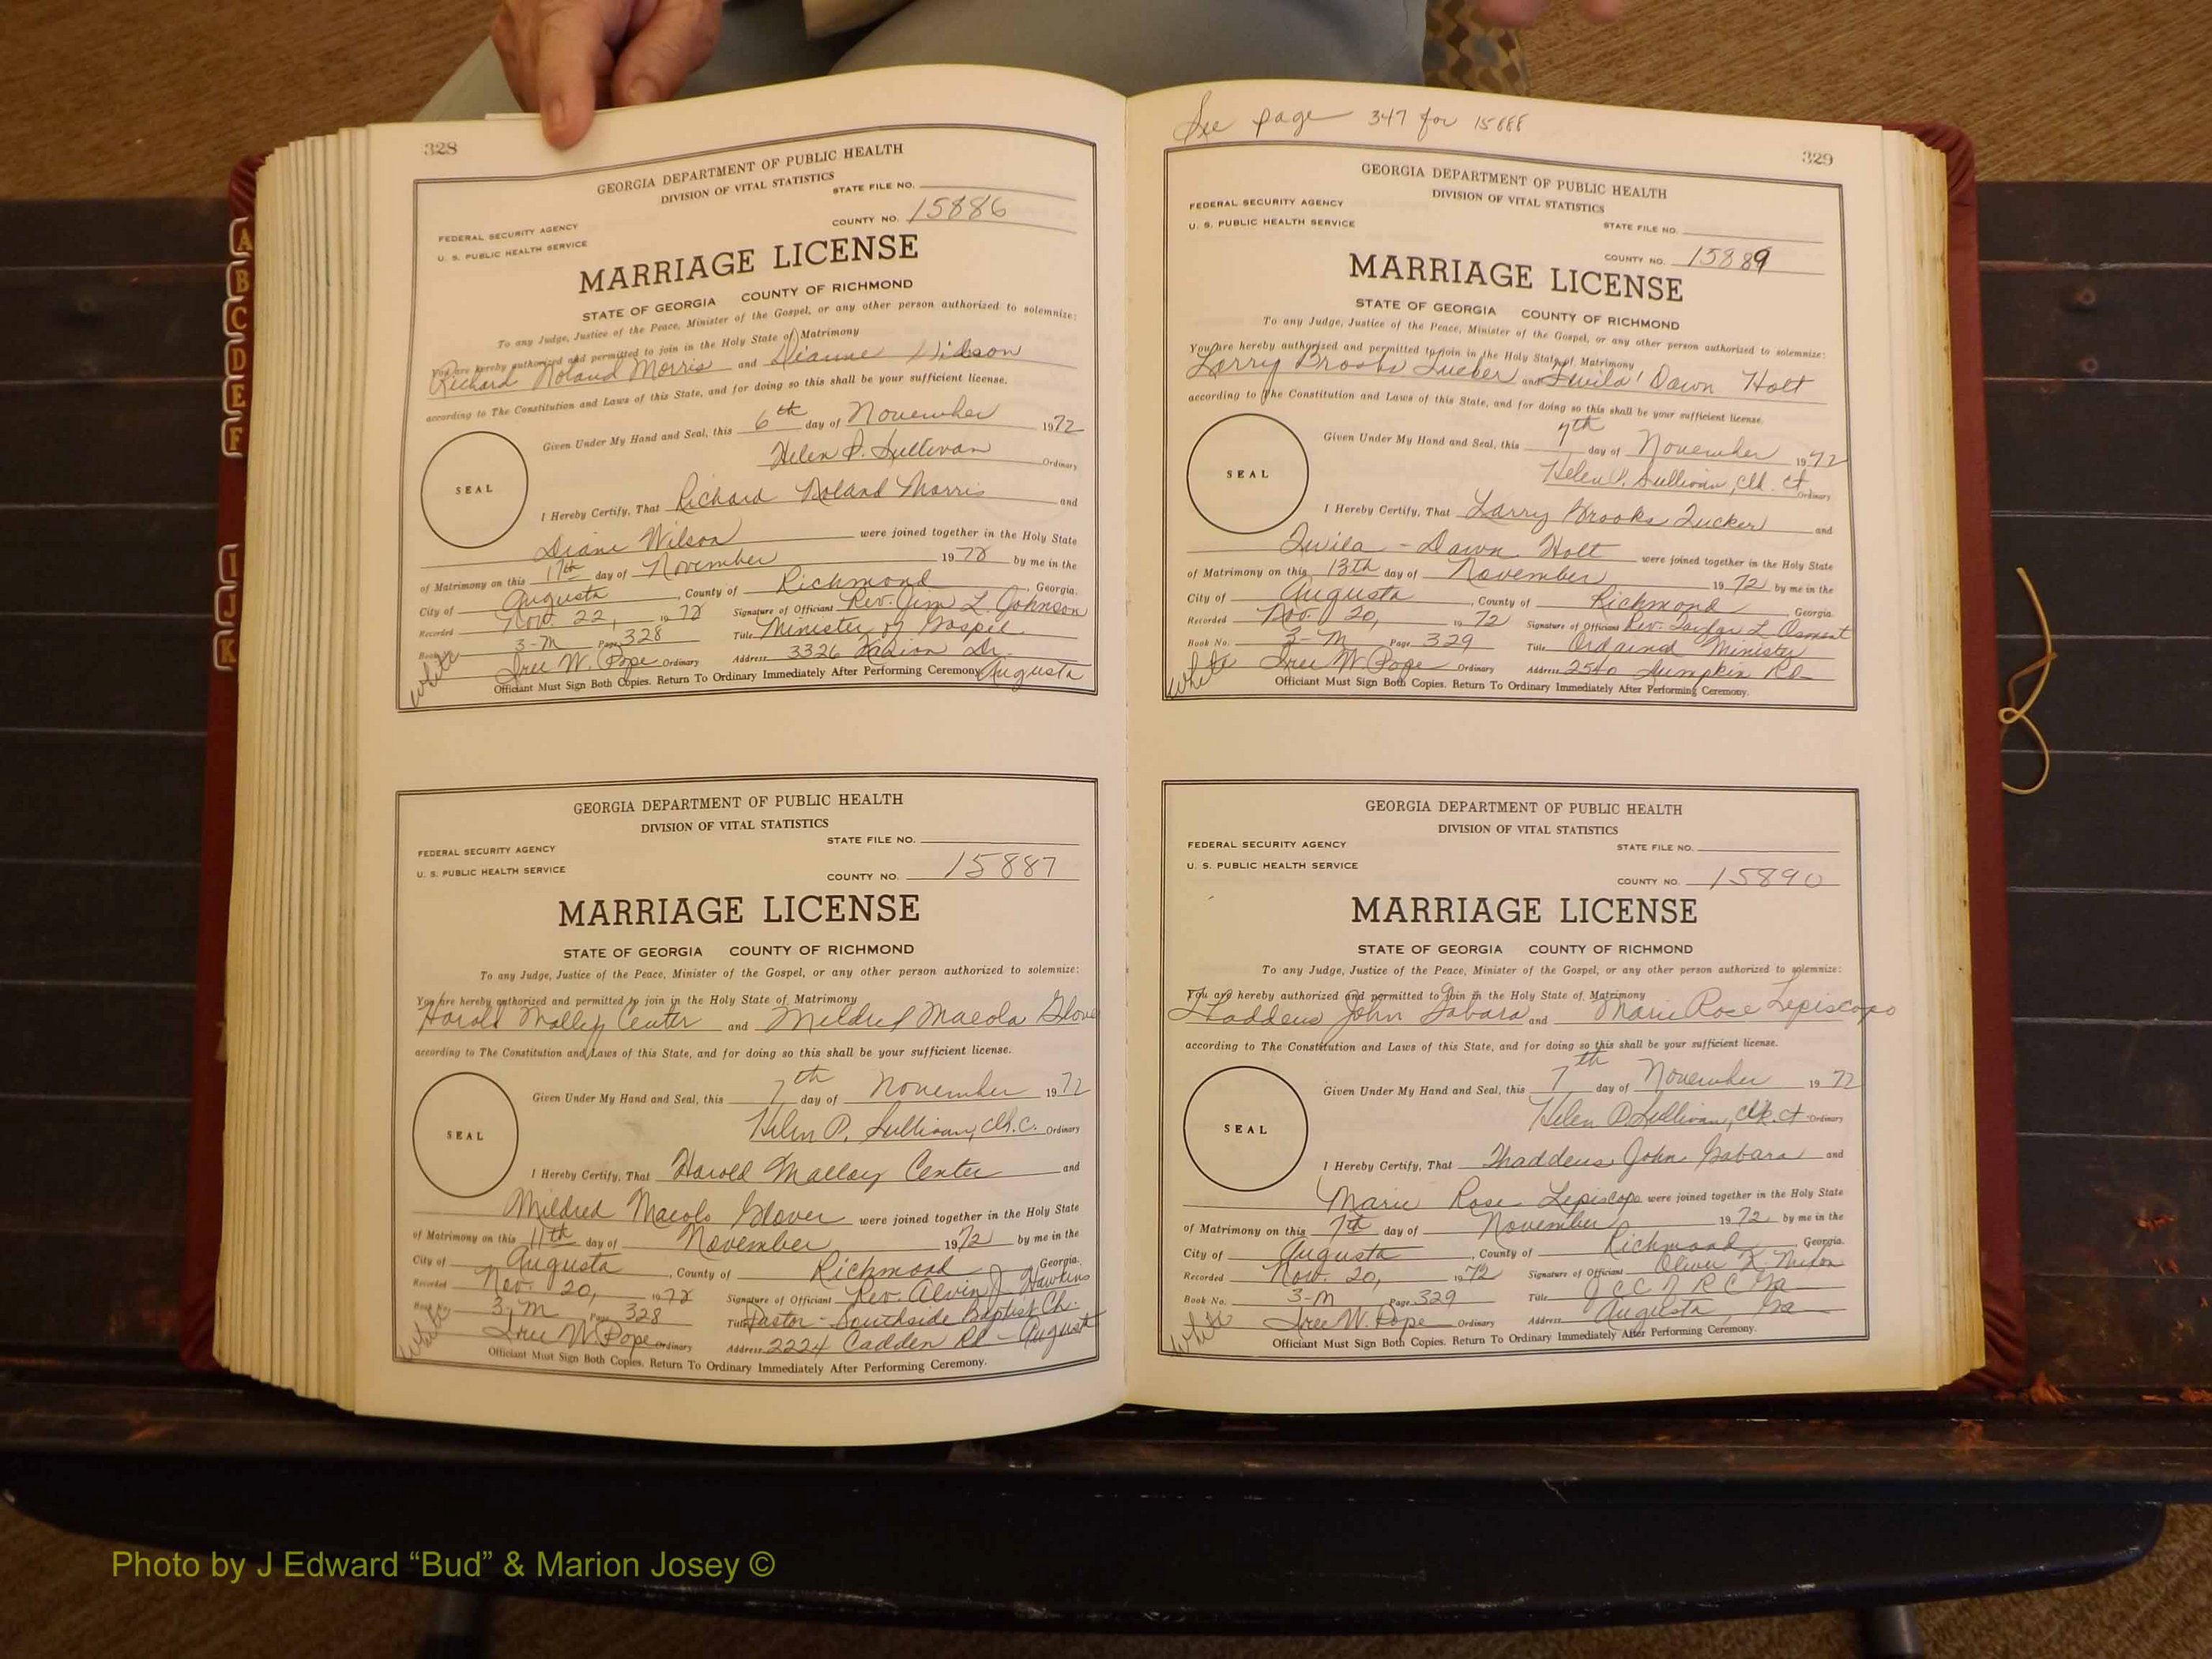 328
GEORGIA DEPARTMENT OF PUBLIC HEALTH
DIVISION OF VITAL STATISTICS
STATE FILE NO.
FEDERAL SECURITY AGENCY
COUNTY NO. 15886
U. S. PUBLIC HEALTH SERVICE
MARRIAGE LICENSE
STATE OF GEORGIA COUNTY OF RICHMOND
To any Judge, Justice of the Peace, Minister of the Gospel, or any other person authorized to solemnize:
You are hereby authorized and permitted to join in the Holy State of Matrimony
Richard Roland Morris and Dianne
according to The Constitution and Laws of this State, and for doing so this shall be your sufficient license.
Given Under My Hand and Seal, this 6th day of November 1972
Helen P. Sullivan Ordinary
SEAL
I Hereby Certify, That Richard Roland Morris and
Diane Wilson were joined together in the Holy State
of Matrimony on this 17th day of November 1972 by me in the
City of Augusta, County of Richmond, Georgia.
Recorded Nov. 22, 1972 Signature of Officiant Rev. Jim L. Johnson
Book No. 3-M Page 328 Title Minister of Gospel
White W. Pope Ordinary Address 3326 Dr.
Augusta
Officiant Must Sign Both Copies. Return To Ordinary Immediately After Performing Ceremony.
GEORGIA DEPARTMENT OF PUBLIC HEALTH
DIVISION OF VITAL STATISTICS
STATE FILE NO.
FEDERAL SECURITY AGENCY
U. S. PUBLIC HEALTH SERVICE
COUNTY NO. 15887
MARRIAGE LICENSE
STATE OF GEORGIA COUNTY OF RICHMOND
To any Judge, Justice of the Peace, Minister of the Gospel, or any other person authorized to solemnize:
You are hereby authorized and permitted to join in the Holy State of Matrimony
Harold Malloy Center and Mildred Maeola Glove
according to The Constitution and Laws of this State, and for doing so this shall be your sufficient license.
Given Under My Hand and Seal, this 7th day of November 1972
Helen P. Sullivan, Clk. C. Ordinary
SEAL
I Hereby Certify, That Harold Malloy Center and
Mildred Maeola Glover were joined together in the Holy State
of Matrimony on this 11th day of November 1972 by me in the
City of Augusta, County of Richmond, Georgia.
Recorded Nov. 20, 1972 Signature of Officiant Rev. Alvin J. Hawkins
Book No. 3-M Page 328 Title Pastor - Southside Baptist Ch.
White W. Pope Ordinary Address 2224 Cadden Rd - August
Officiant Must Sign Both Copies. Return To Ordinary Immediately After Performing Ceremony.
See page 347 for 15888
329
GEORGIA DEPARTMENT OF PUBLIC HEALTH
DIVISION OF VITAL STATISTICS
FEDERAL SECURITY AGENCY
U. S. PUBLIC HEALTH SERVICE
STATE FILE NO.
COUNTY NO. 15889
MARRIAGE LICENSE
STATE OF GEORGIA COUNTY OF RICHMOND
To any Judge, Justice of the Peace, Minister of the Gospel, or any other person authorized to solemnize:
You are hereby authorized and permitted to join in the Holy State of Matrimony
Larry Brooks Tucker and Twila Dawn Holt
according to The Constitution and Laws of this State, and for doing so this shall be your sufficient license.
Given Under My Hand and Seal, this 7th day of November 1972
Helen P. Sullivan, Clk. Ct. Ordinary
SEAL
I Hereby Certify, That Larry Brooks Tucker and
Twila - Dawn Holt were joined together in the Holy State
of Matrimony on this 13th day of November 1972 by me in the
City of Augusta, County of Richmond Georgia.
Recorded Nov. 20, 1972 Signature of Officiant Rev. L.
Book No. 3-M Page 329 Title Ordained Minister
White W. Pope Ordinary Address 2540 Lumpkin Rd
Officiant Must Sign Both Copies. Return To Ordinary Immediately After Performing Ceremony.
GEORGIA DEPARTMENT OF PUBLIC HEALTH
DIVISION OF VITAL STATISTICS
FEDERAL SECURITY AGENCY
STATE FILE NO.
U. S. PUBLIC HEALTH SERVICE
COUNTY NO. 15890
MARRIAGE LICENSE
STATE OF GEORGIA COUNTY OF RICHMOND
To any Judge, Justice of the Peace, Minister of the Gospel, or any other person authorized to solemnize:
You are hereby authorized and permitted to join in the Holy State of Matrimony
Thaddeus John Gabara and Marie Rose Lepiscopo
according to The Constitution and Laws of this State, and for doing so this shall be your sufficient license.
Given Under My Hand and Seal, this 7th day of November 1972
Helen P. Sullivan, Clk. Ct Ordinary
SEAL
I Hereby Certify, That Thaddeus John Gabara and
Marie Rose Lepiscopo were joined together in the Holy State
of Matrimony on this 7th day of November 1972 by me in the
City of Augusta, County of Richmond, Georgia.
Recorded Nov. 20, 1972 Signature of Officiant Oliver K. Mixon
Book No. 3-M Page 329 Title J C C R C Ga
White W. Pope Ordinary Address Augusta Ga
Officiant Must Sign Both Copies. Return To Ordinary Immediately After Performing Ceremony.
A
B
C
D
E
F
I
J
K
Photo by J Edward “Bud” & Marion Josey ©